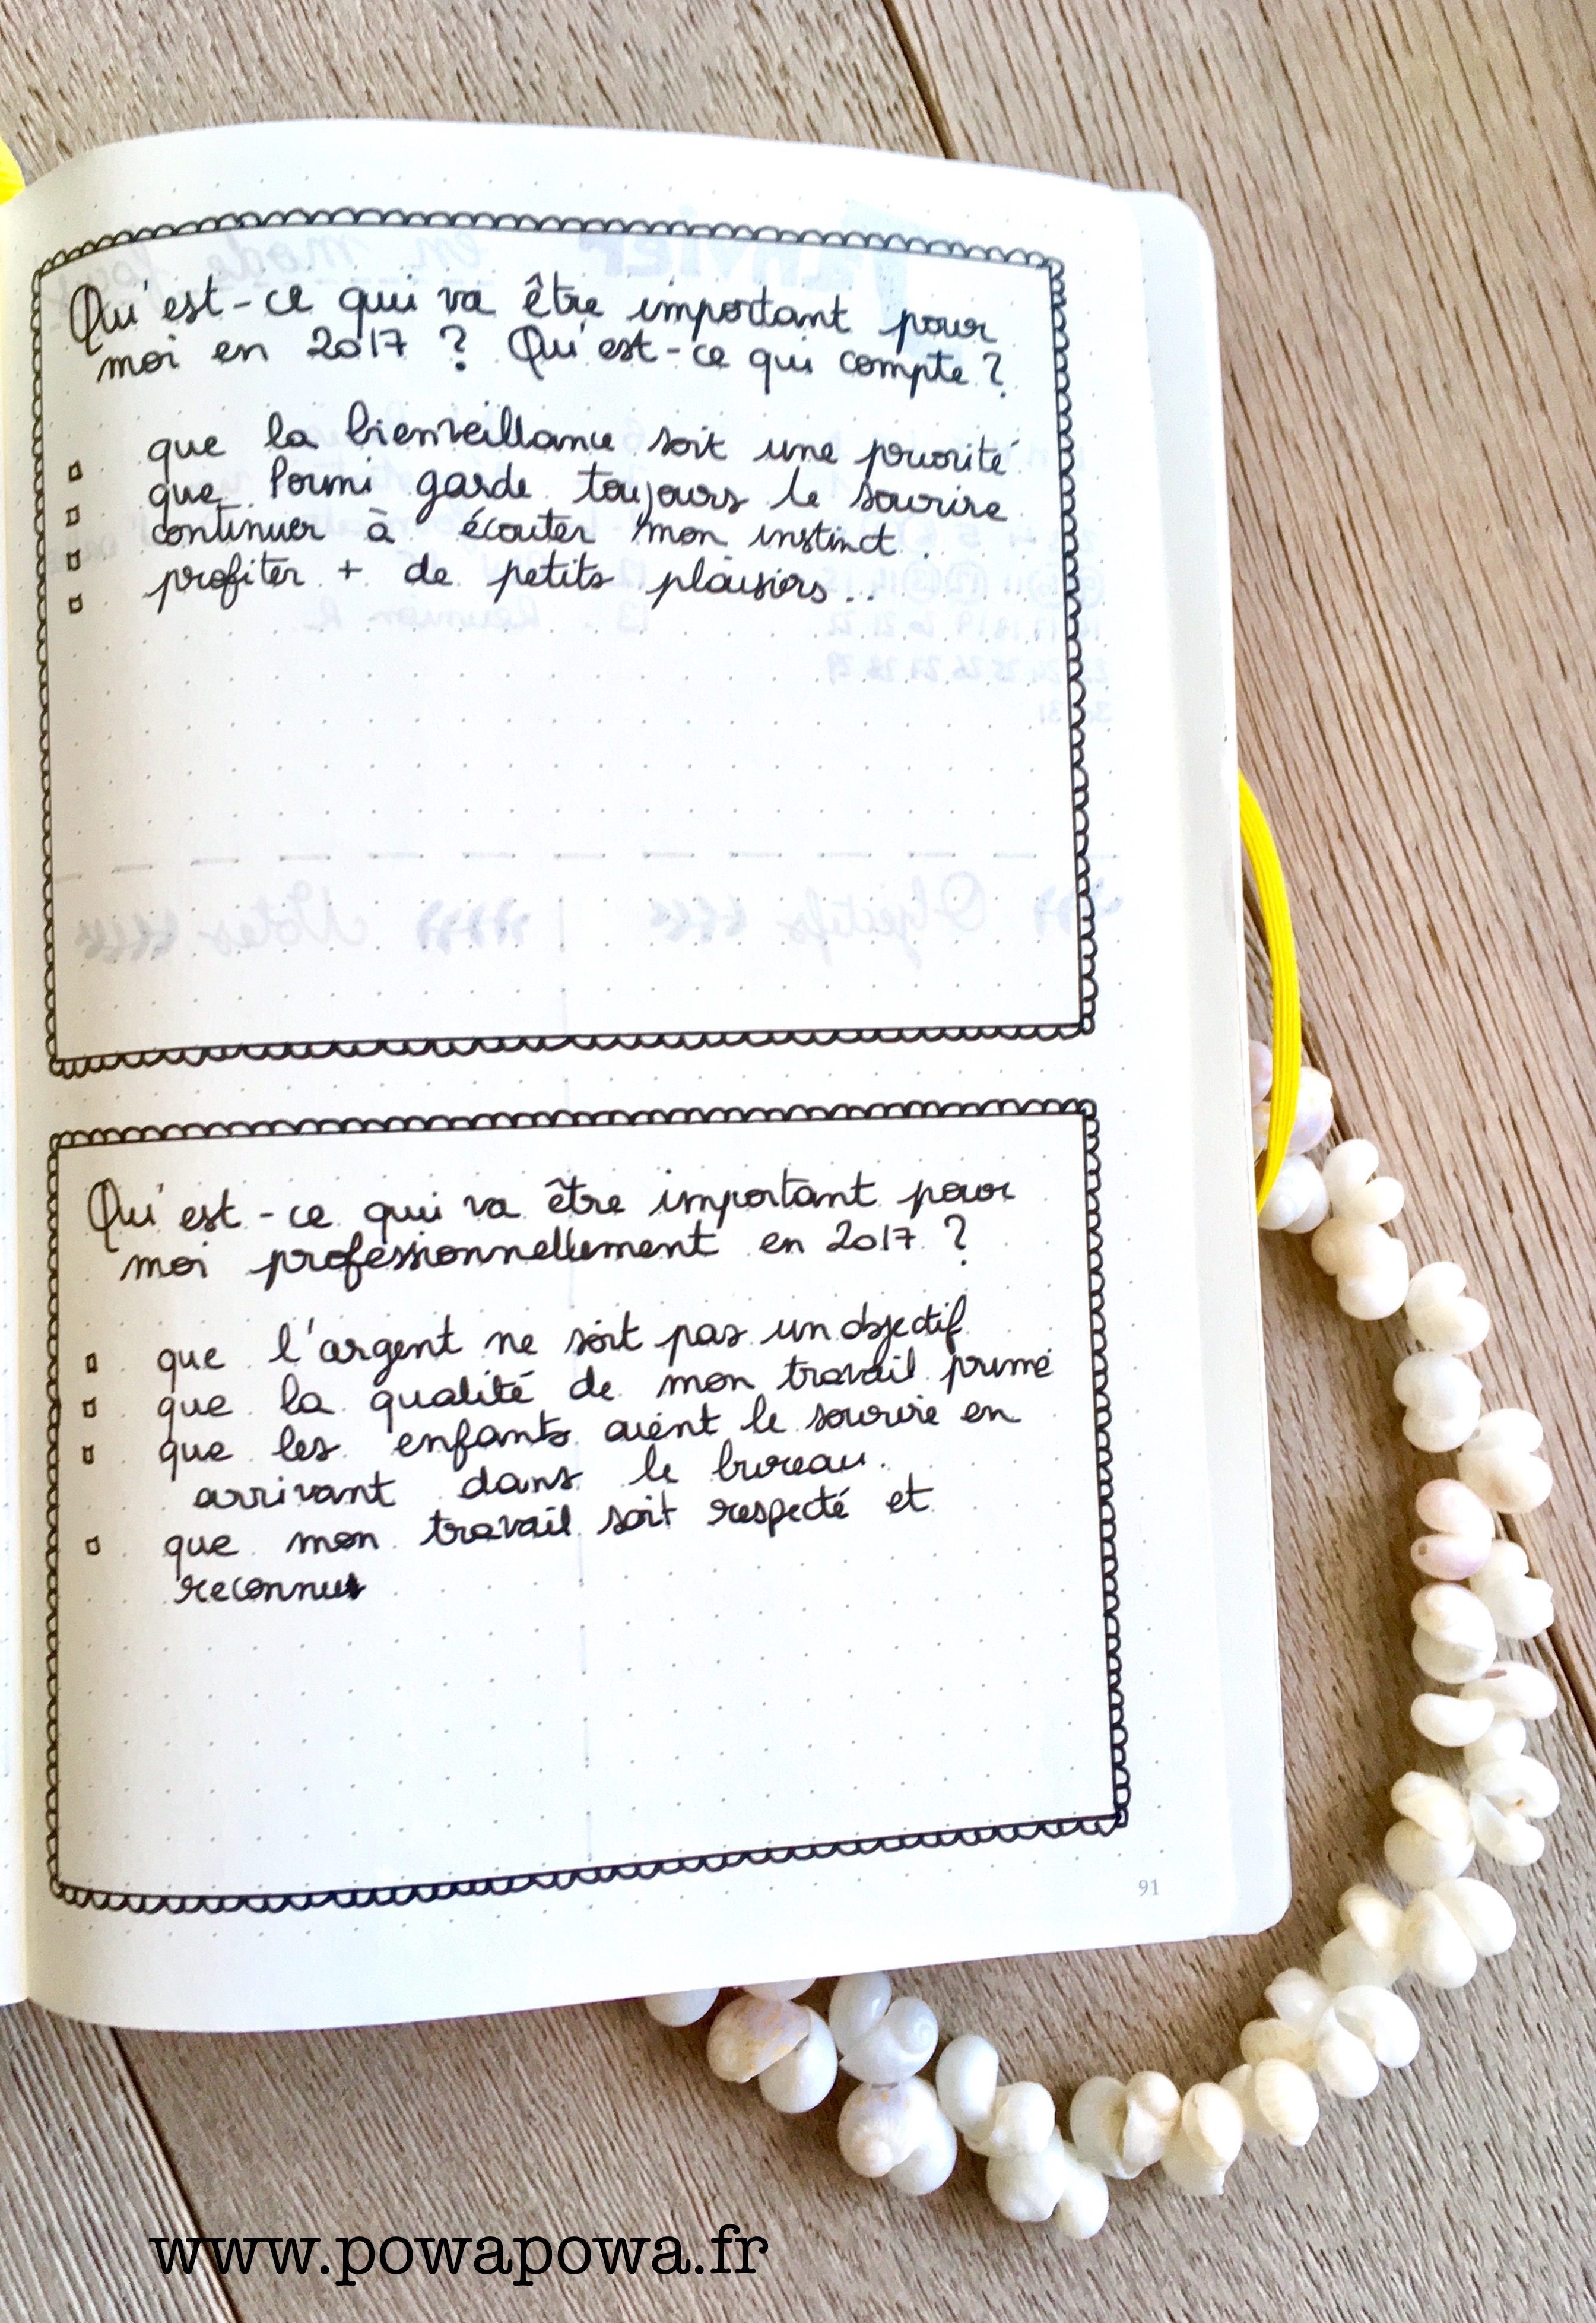 Qu'est-ce qui va être important pour
moi en 2017 ? Qu'est-ce qui compte ?
que la bienveillance soit une priorité
que Poumi garde toujours le sourire
continuer à écouter mon instinct.
profiter + de petits plaisirs...
Qu'est-ce qui va être important pour
moi professionnellement en 2017 ?
que l'argent ne soit pas un objectif
que la qualité de mon travail prime
que les enfants aient le sourire en
arrivant dans le bureau.
que mon travail soit respecté et
reconnu
91
www.powapowa.fr